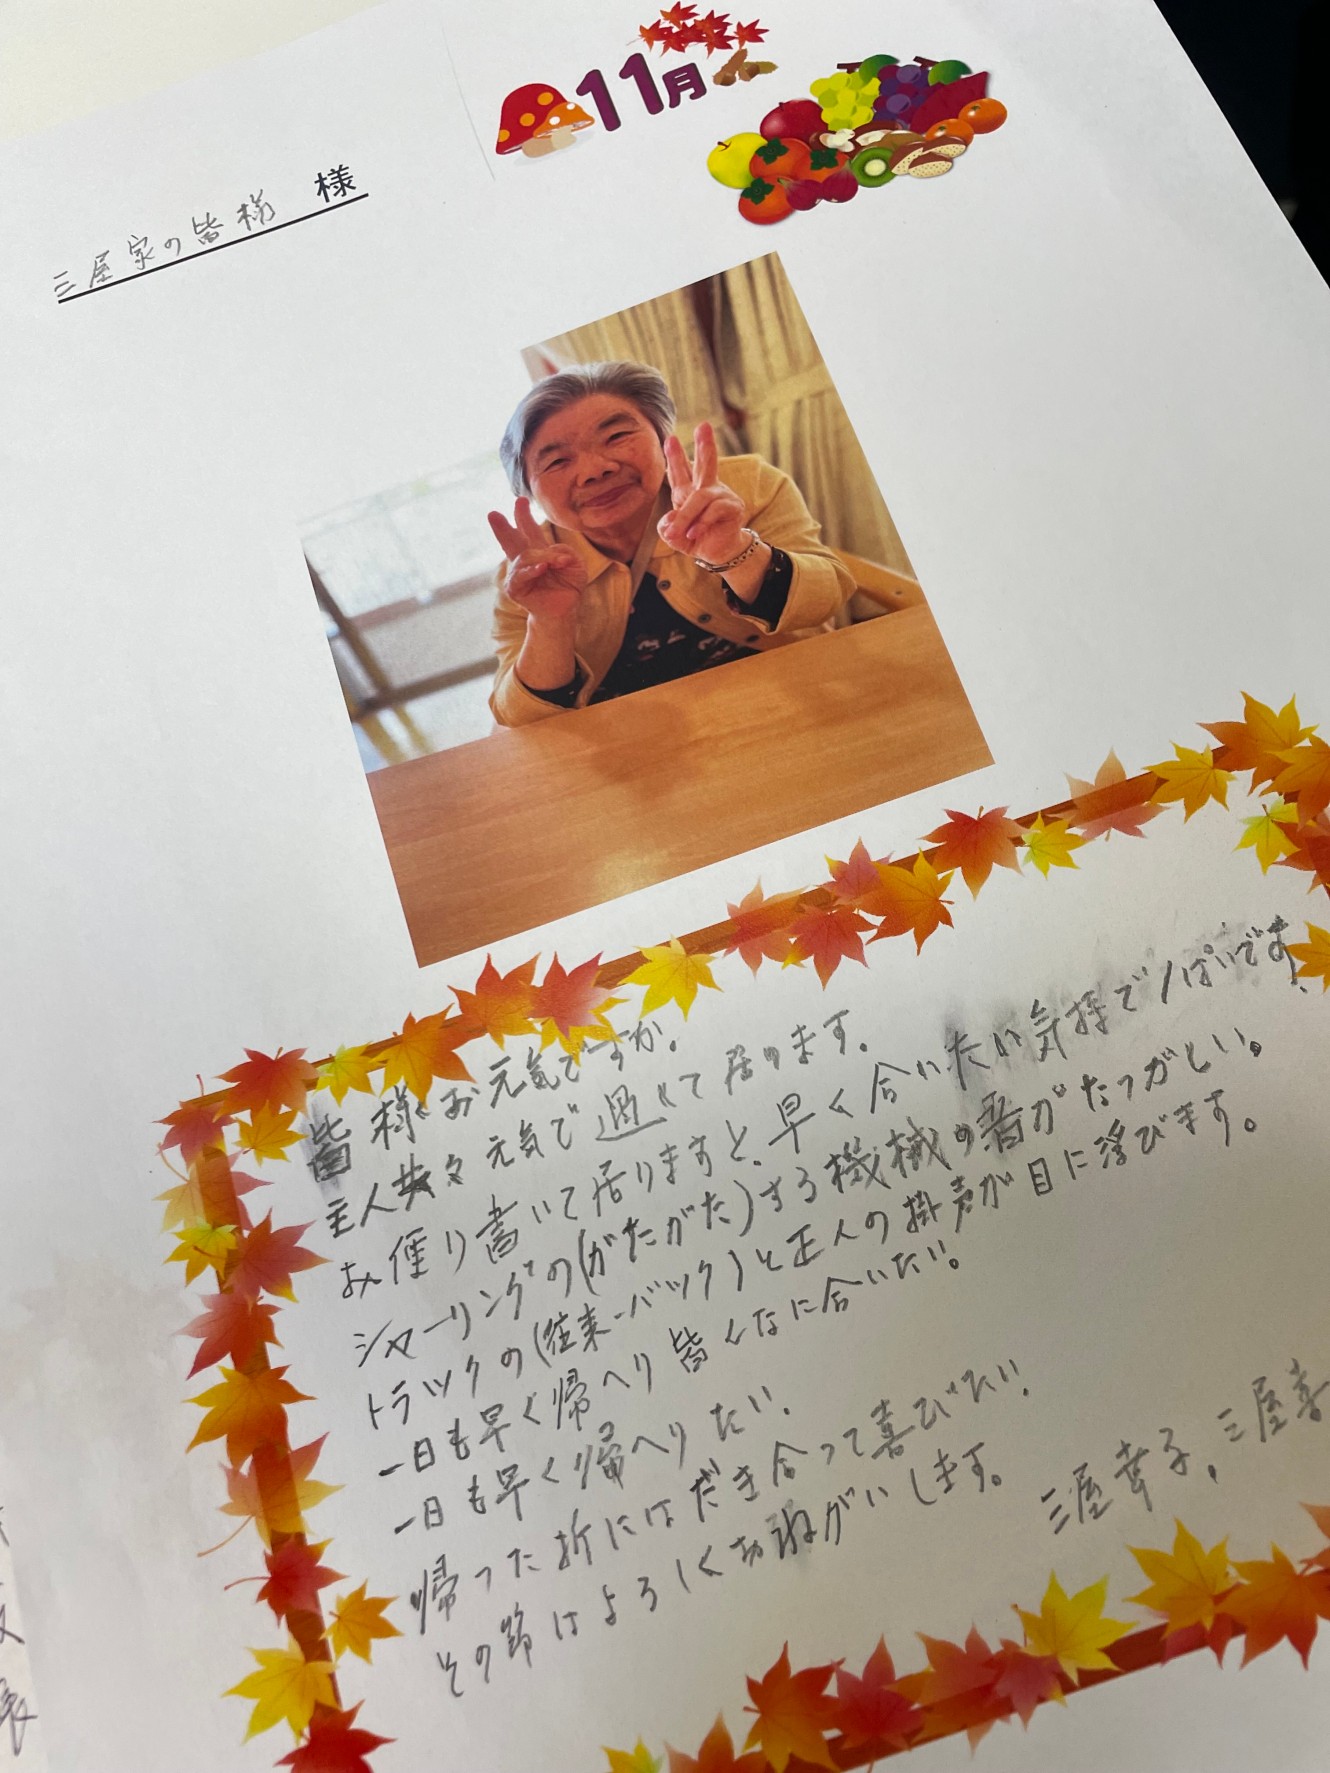 11月
三屋家の皆様 様
皆様お元気ですか。
主人共々元気で過して居ります。
お便り書いて居りますと、早く合いたい気持で1ぱいです、
シャーリングの(がたがた)する機械の音がなつがしい。
トラックの(往来-バック)と正人の掛声が目に浮びます。
一日も早く帰へり皆んなに合いたい。
一日も早く帰へりたい。
帰った折にはだき合って喜びたい。
その節はよろしくお願がいします。
三屋幸子、三屋喜